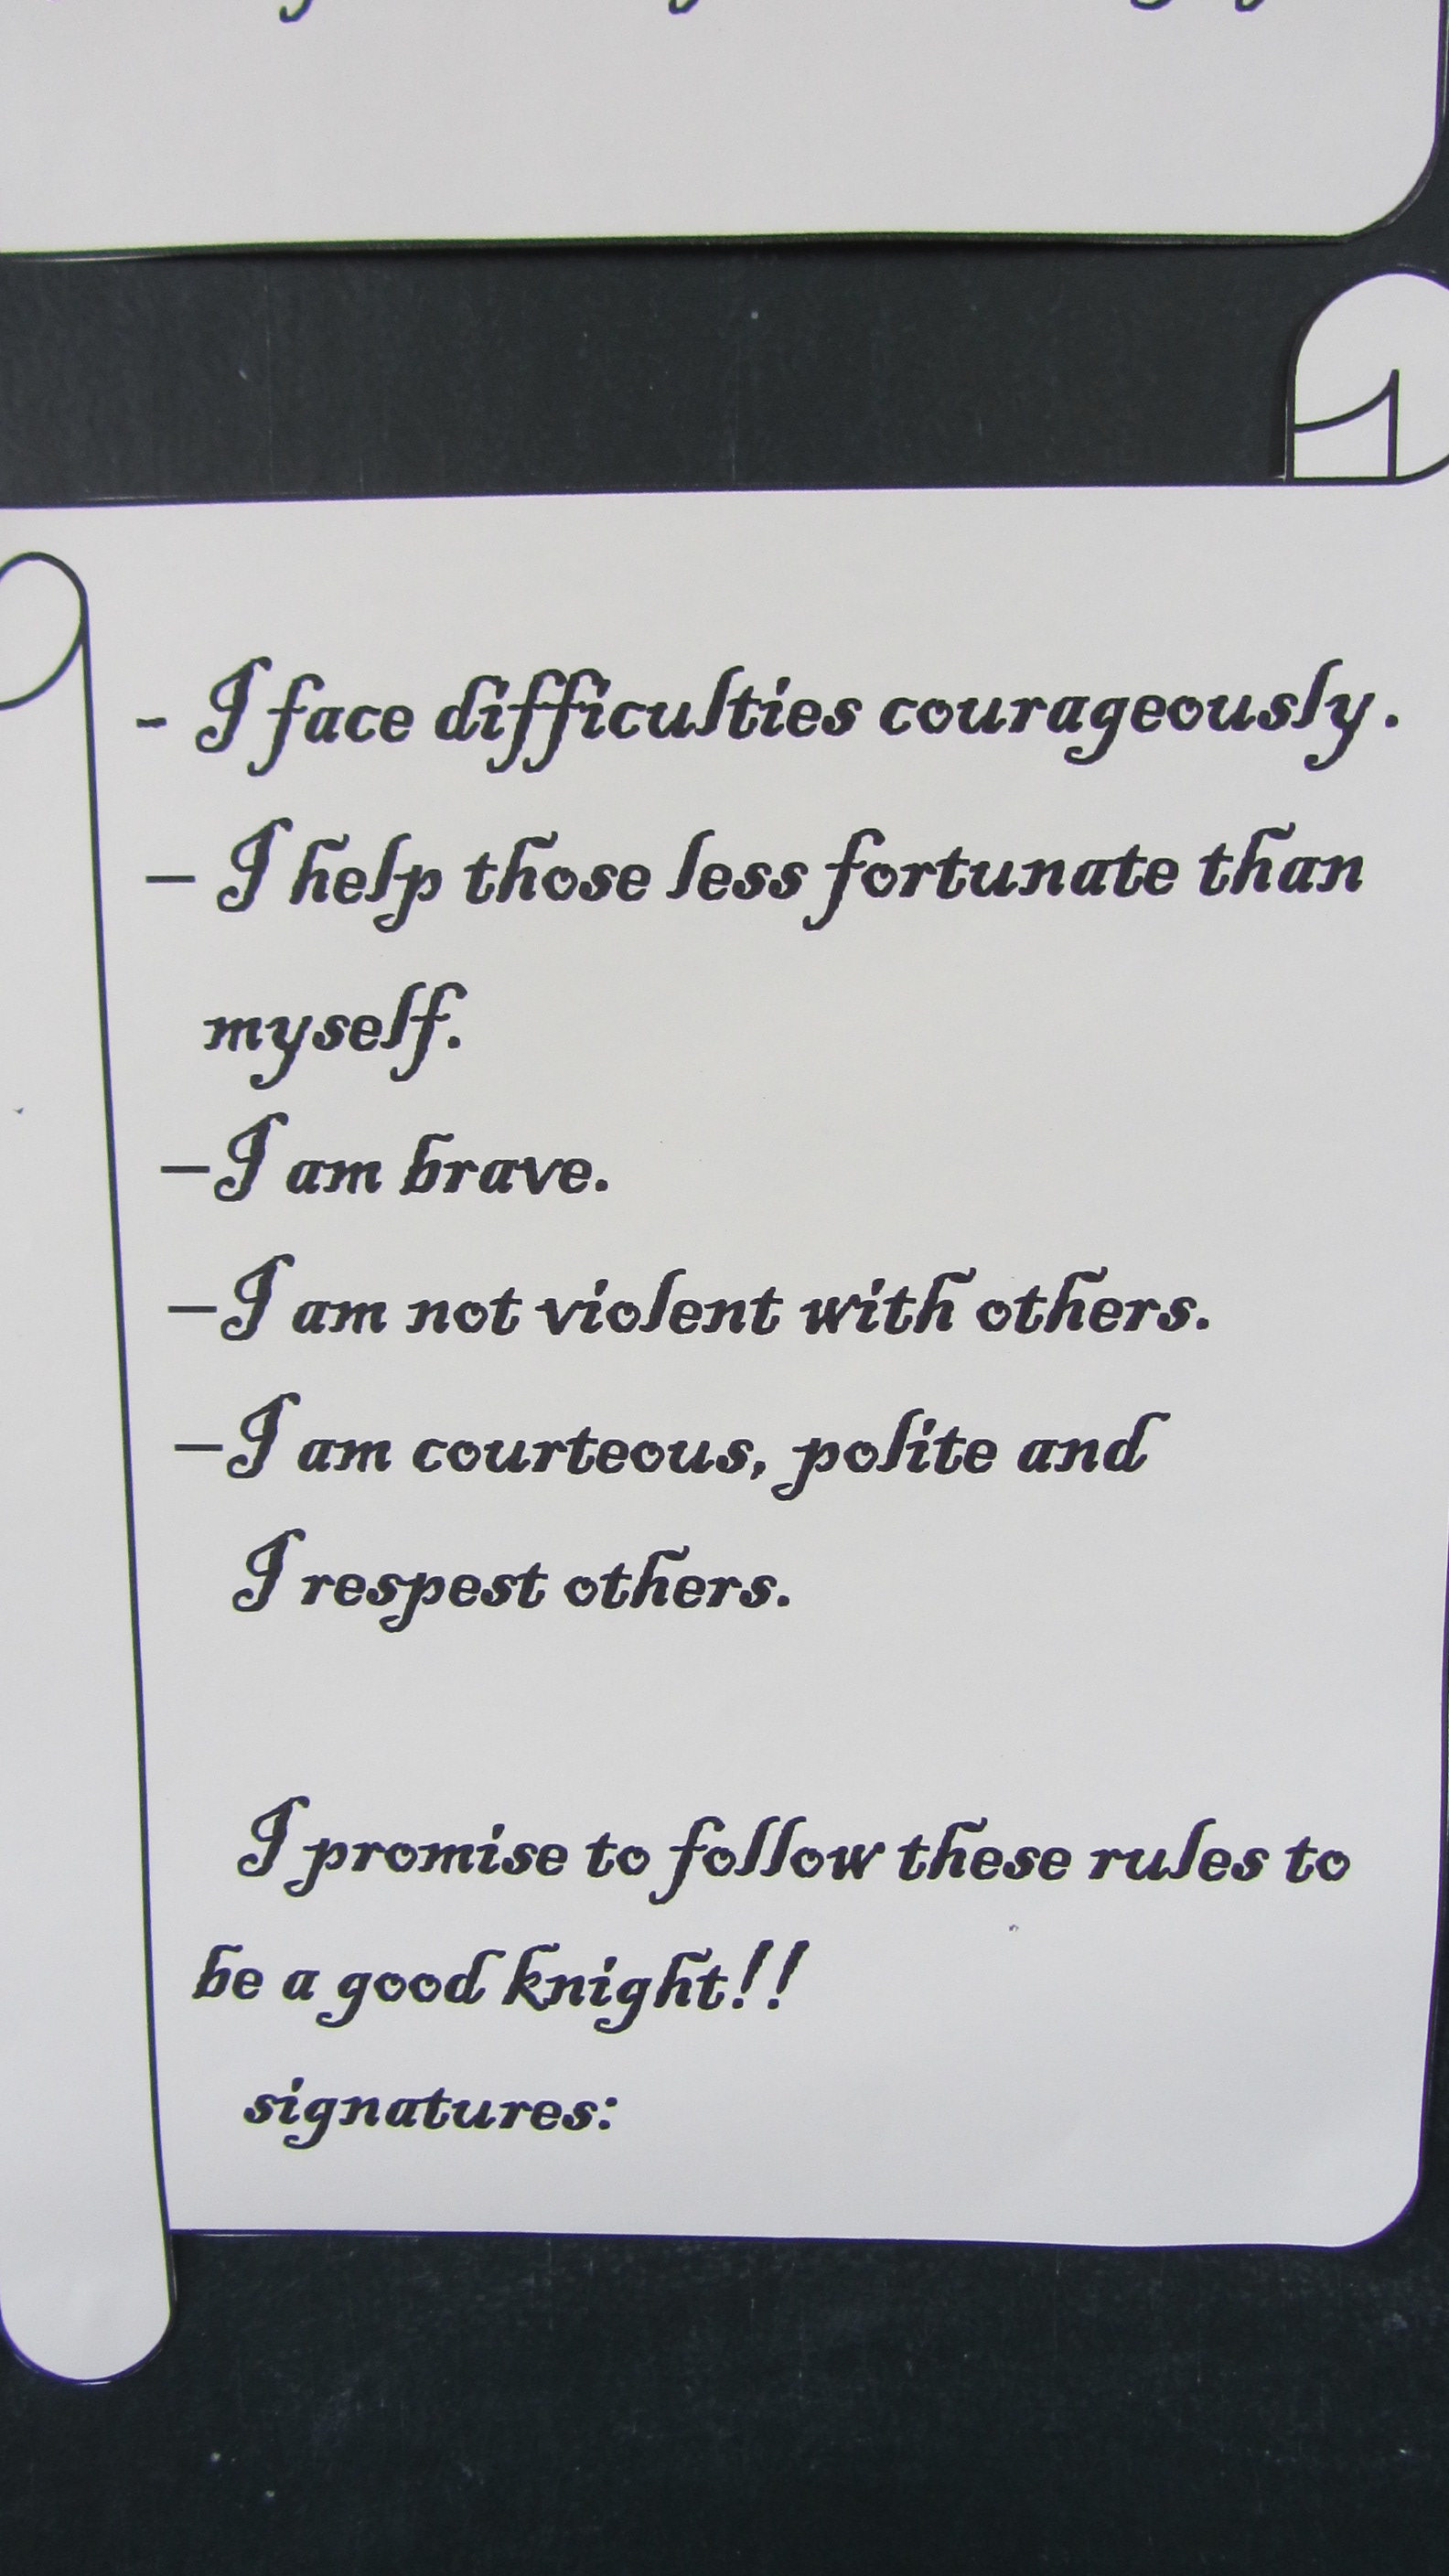 - I face difficulties courageously.
– I help those less fortunate than
myself.
–I am brave.
–I am not violent with others.
–I am courteous, polite and
I respest others.
I promise to follow these rules to
be a good knight!!
signatures: